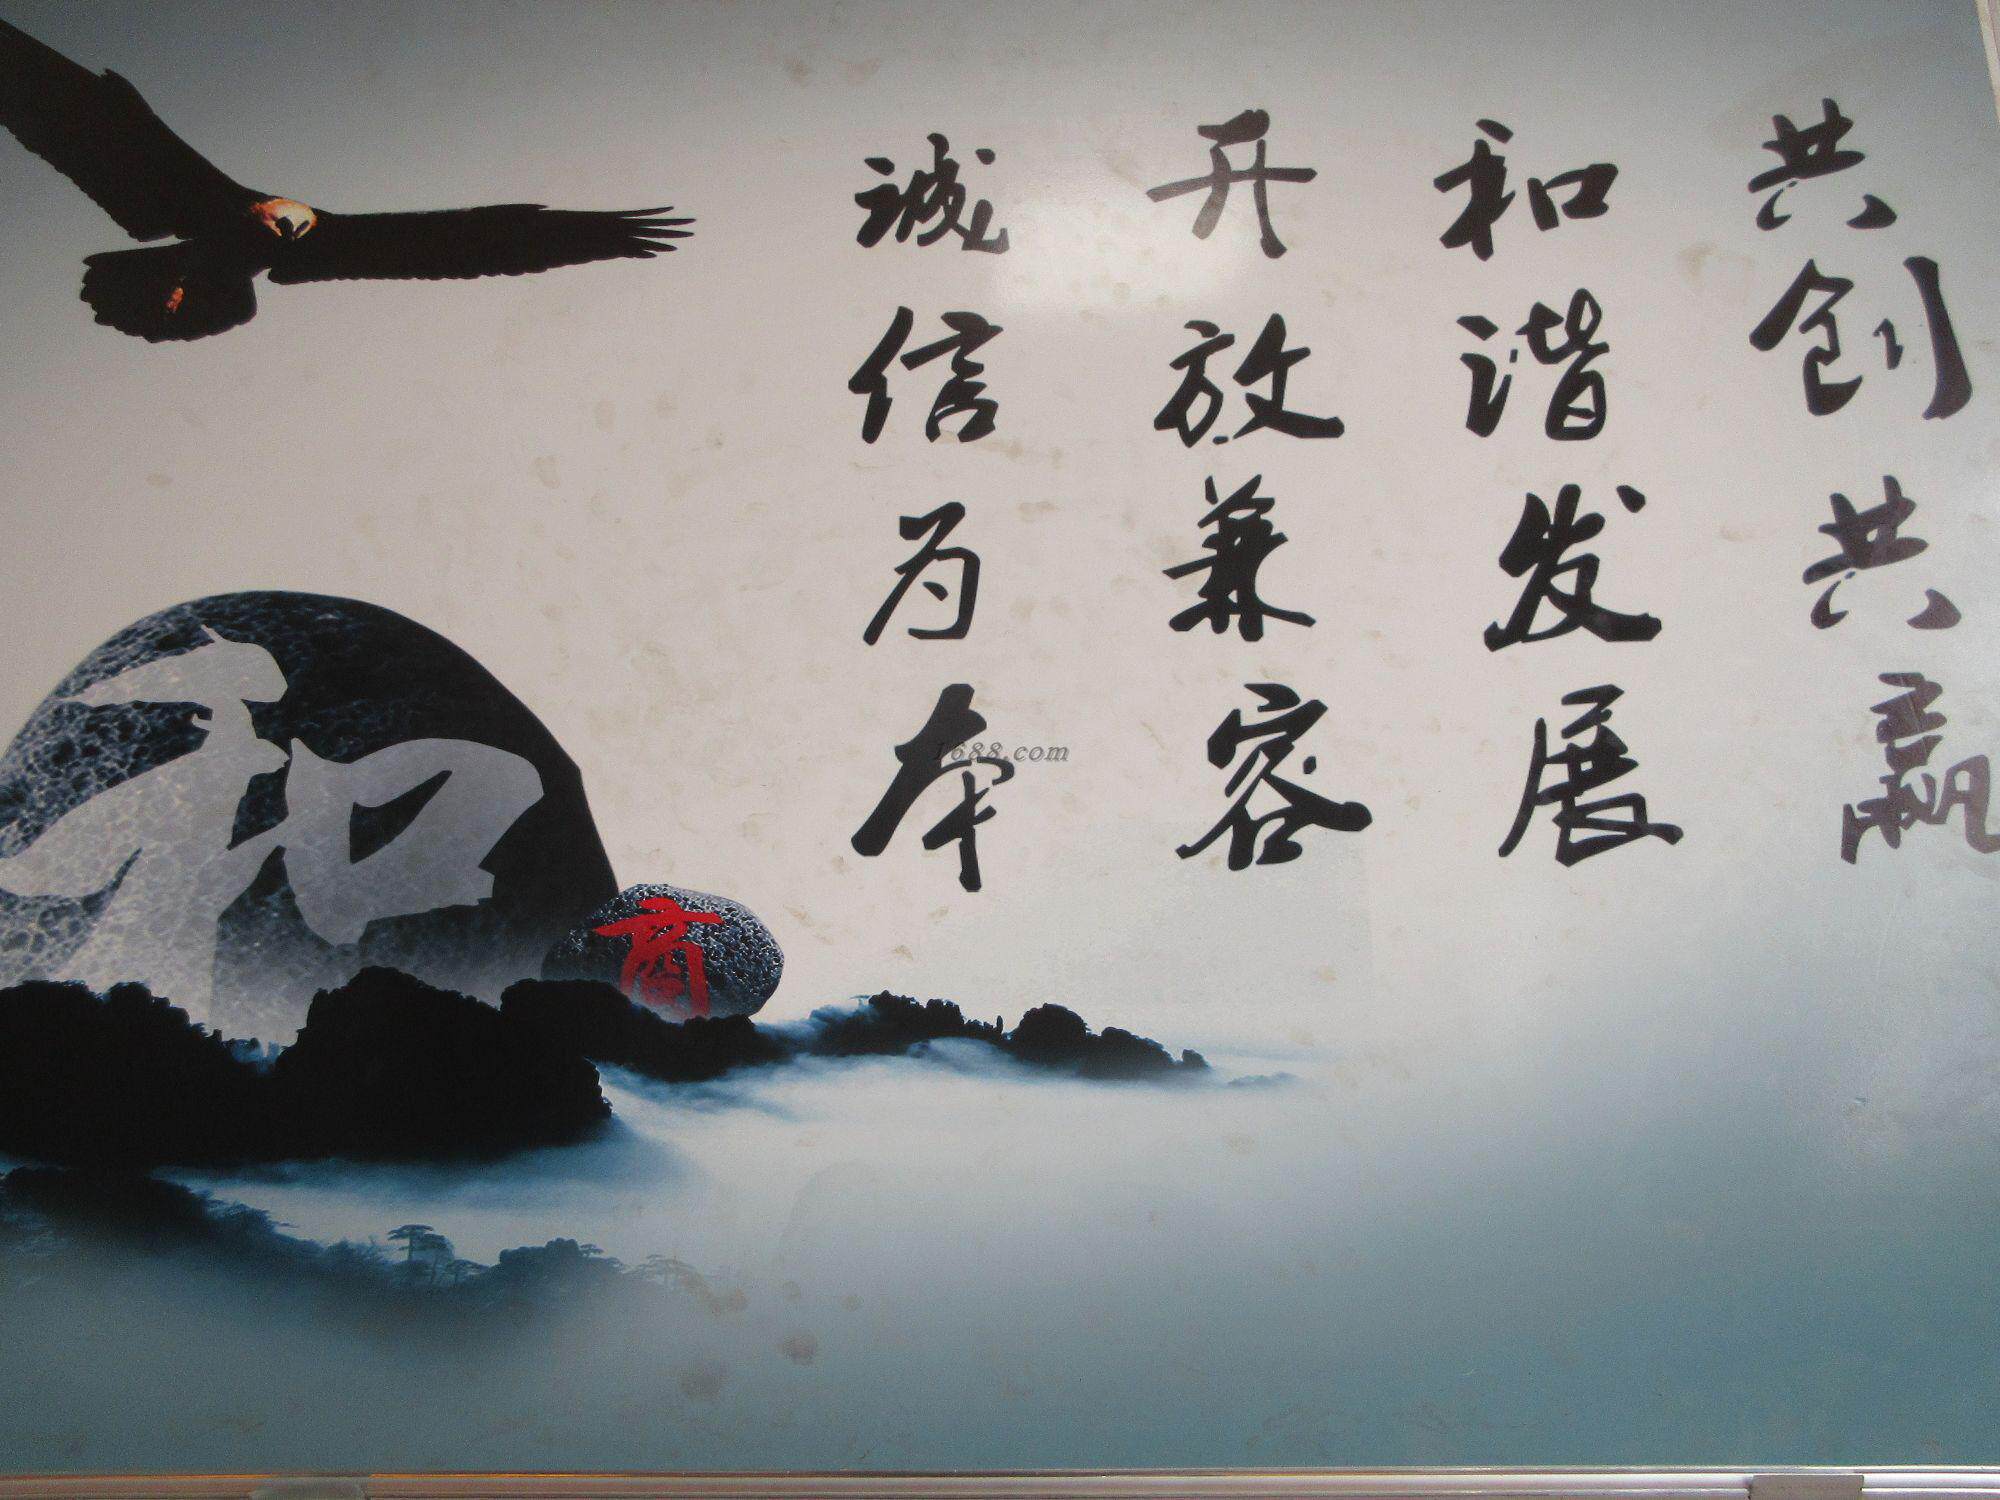 诚信为本
开放兼容
和谐发展
共创共赢
和
商
1688.com